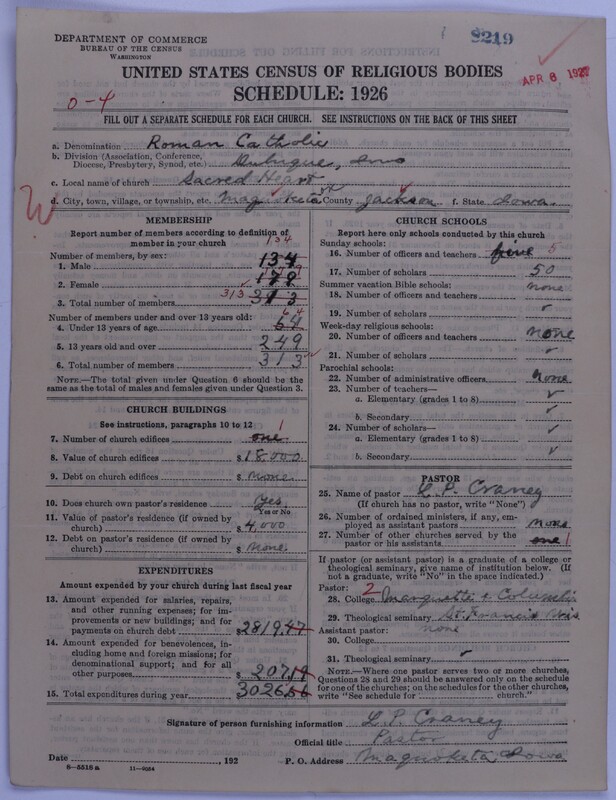 DEPARTMENT OF COMMERCE
BUREAU OF THE CENSUS
WASHINGTON
8219
APR 8 1927
UNITED STATES CENSUS OF RELIGIOUS BODIES
SCHEDULE: 1926
0-4
FILL OUT A SEPARATE SCHEDULE FOR EACH CHURCH. SEE INSTRUCTIONS ON THE BACK OF THIS SHEET
a. Denomination Roman Catholic
b. Division (Association, Conference, Diocese, Presbytery, Synod, etc.) Dubuque, Iowa
c. Local name of church Sacred Heart
d. City, town, village, or township, etc. Maquoketa County Jackson f. State Iowa.
MEMBERSHIP
Report number of members according to definition of
member in your church
Number of members, by sex: 134
1. Male 134
2. Female 179
3. Total number of members 313 313
Number of members under and over 13 years old: 64
4. Under 13 years of age 64
5. 13 years old and over 249
6. Total number of members 313
NOTE.—The total given under Question 6 should be the
same as the total of males and females given under Question 3.
CHURCH BUILDINGS
See instructions, paragraphs 10 to 12
7. Number of church edifices one 1
8. Value of church edifices $ 18,000
9. Debt on church edifices $ none
10. Does church own pastor's residence Yes
Yes or No
11. Value of pastor's residence (if owned by
church) $ 4,000
12. Debt on pastor's residence (if owned by
church) $ none
EXPENDITURES
Amount expended by your church during last fiscal year
13. Amount expended for salaries, repairs,
and other running expenses; for im-
provements or new buildings; and for
payments on church debt $ 2819.47
14. Amount expended for benevolences, in-
cluding home and foreign missions; for
denominational support; and for all
other purposes $ 207.19
15. Total expenditures during year $ 3026.66
CHURCH SCHOOLS
Report here only schools conducted by this church
Sunday schools:
16. Number of officers and teachers five 5
17. Number of scholars 50
Summer vacation Bible schools:
18. Number of officers and teachers none
19. Number of scholars
Week-day religious schools:
20. Number of officers and teachers none
21. Number of scholars
Parochial schools:
22. Number of administrative officers none
23. Number of teachers—
a. Elementary (grades 1 to 8)
b. Secondary
24. Number of scholars—
a. Elementary (grades 1 to 8)
b. Secondary
PASTOR
25. Name of pastor L. P. Craney
(If church has no pastor, write "None")
26. Number of ordained ministers, if any, em-
ployed as assistant pastors none
27. Number of other churches served by the
pastor or his assistants one 1
If pastor (or assistant pastor) is a graduate of a college or
theological seminary, give name of institution below. (If
not a graduate, write "No" in the space indicated.)
Pastor: 2
28. College Marquette &
29. Theological seminary St. Francis Wis
Assistant pastor: none
30. College
31. Theological seminary
NOTE.—Where one pastor serves two or more churches,
Questions 28 and 29 should be answered only on the schedule
for one of the churches; on the schedules for the other churches,
write "See schedule for church."
Signature of person furnishing information L. P. Craney
Official title Pastor
Date , 192 P. O. Address Maquoketa Iowa
8—5518 a 11—9024